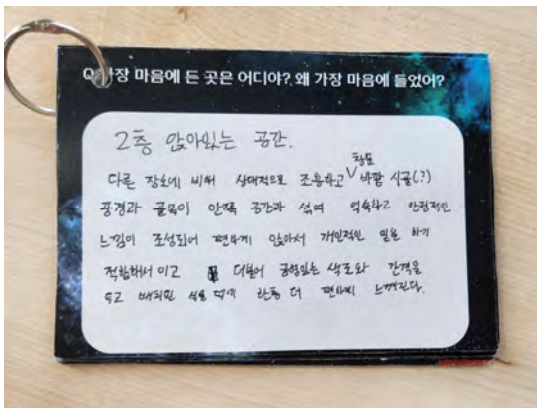 Q. 가장 마음에 든 곳은 어디야? 왜 가장 마음에 들었어?
2층 앉아있는 공간.
다른 장소에 비해 상대적으로 조용하고 창문 바깥 시골(?)
풍경과 골목이 안쪽 공간과 섞여 익숙하고 안정적인
느낌이 조성되어 편하게 앉아서 개인적인 일을 하기
적합해서 이고 더불어 균형있는 색조와 간격을
두고 배치된 식물 덕에 한층 더 편하게 느껴진다.